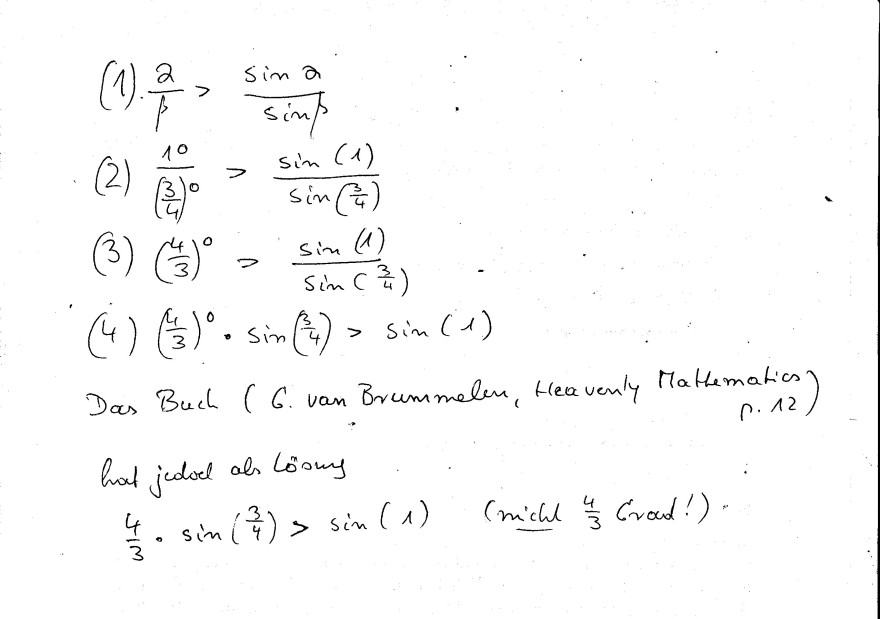 (1). α/β > sin α / sin β
(2) 1° / (3/4)° > sin (1) / sin (3/4)
(3) (4/3)° > sin (1) / sin (3/4)
(4) (4/3)° • sin (3/4) > sin (1)
Das Buch (G. van Brummelen, Heavenly Mathematics
p. 12)
hat jedoch als Lösung
4/3 • sin (3/4) > sin (1) (nicht 4/3 Grad!).